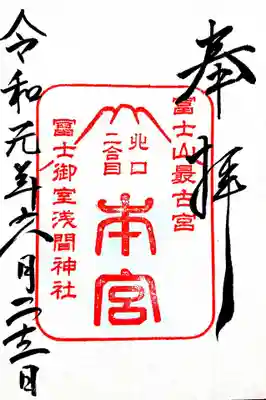 奉拝
富士山最古宮
北口
二合目
本宮
冨士御室浅間神社
令和元年六月二十三日